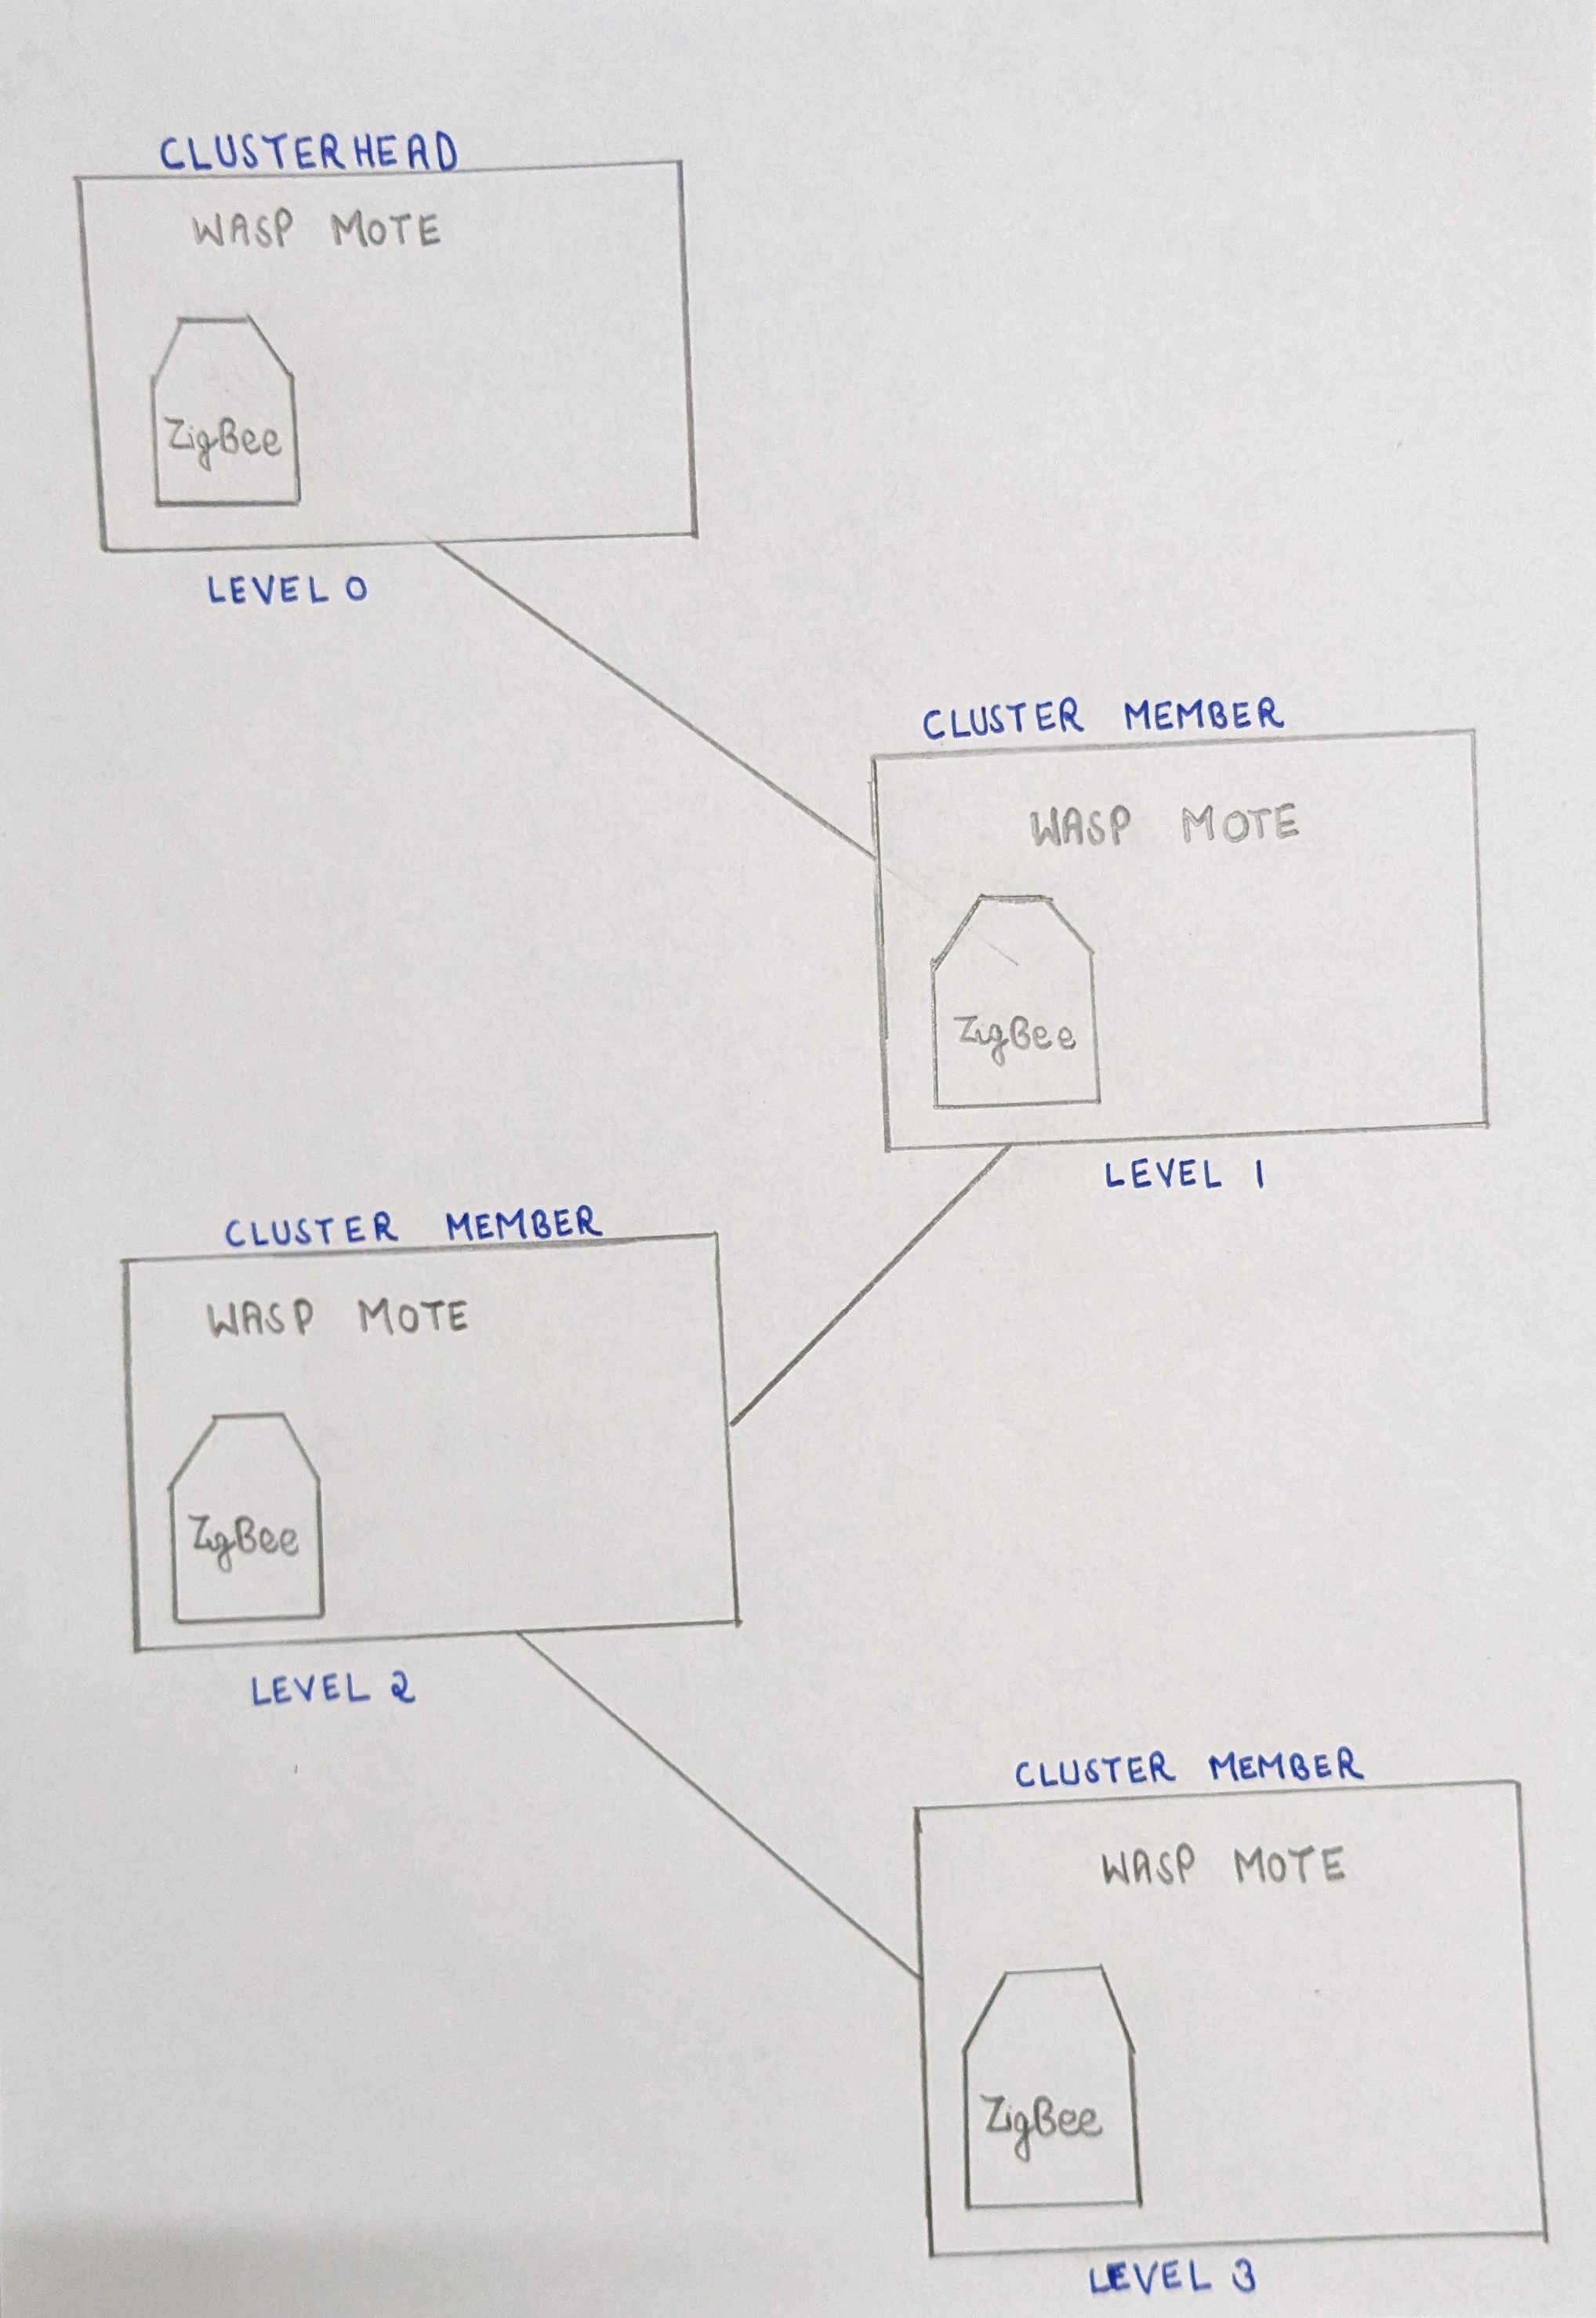 CLUSTERHEAD
WASP MOTE
ZigBee
LEVEL 0
CLUSTER MEMBER
WASP MOTE
ZigBee
LEVEL 1
CLUSTER MEMBER
WASP MOTE
ZigBee
LEVEL 2
CLUSTER MEMBER
WASP MOTE
ZigBee
LEVEL 3